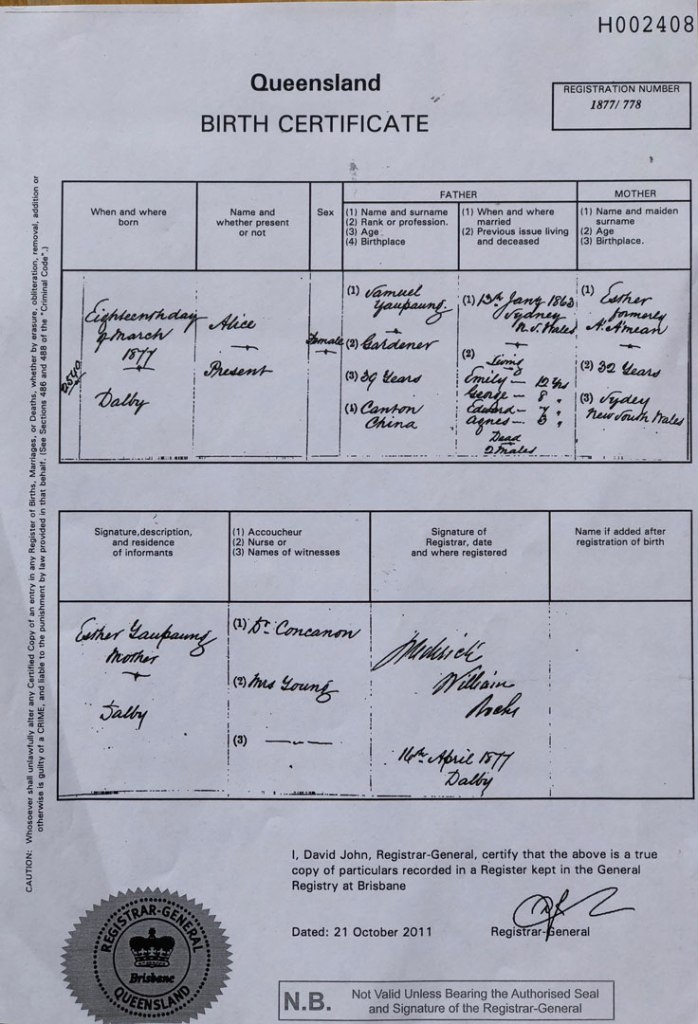 H002408
Queensland
BIRTH CERTIFICATE
REGISTRATION NUMBER
1877/ 778
When and where
born
Name and
whether present
or not
Sex
FATHER
(1) Name and surname
(2) Rank or profession.
(3) Age
(4) Birthplace
(1) When and where
married
(2) Previous issue living
and deceased
MOTHER
(1) Name and maiden
surname
(2) Age
(3) Birthplace.
2540
Eighteenth day
of March
1877
Dalby
Alice
Present
Female
(1) Samuel
Yaupaung.
(2) Gardener
(3) 39 Years
(4) Canton
China
(1) 13th Jany 1863
Sydney
N. S. Wales
(2) Living
Emily — 12 Yrs
George — 8 "
Edward — 7 "
Agnes — 3 "
Dead
2 Males
(1) Esther
formerly
A.
(2) 32 Years
(3) Sydey
New South Wales
Signature, description,
and residence
of informants
(1) Accoucheur
(2) Nurse or
(3) Names of witnesses
Signature of
Registrar, date
and where registered
Name if added after
registration of birth
Esther Yaupaung
Mother
Dalby
(1) Dr. Concanon
(2) Mrs Young
(3) ———
Frederick
William
16th April 1877
Dalby
CAUTION: Whosoever shall unlawfully alter any Certified Copy of an entry in any Register of Births, Marriages, or Deaths, whether by erasure, obliteration, removal, addition or
otherwise is guilty of a CRIME, and liable to the punishment by law provided in that behalf. (See Sections 486 and 488 of the "Criminal Code".)
I, David John, Registrar-General, certify that the above is a true
copy of particulars recorded in a Register kept in the General
Registry at Brisbane
Dated: 21 October 2011
Registrar-General
REGISTRAR-GENERAL
Brisbane
QUEENSLAND
N.B.
Not Valid Unless Bearing the Authorised Seal
and Signature of the Registrar-General